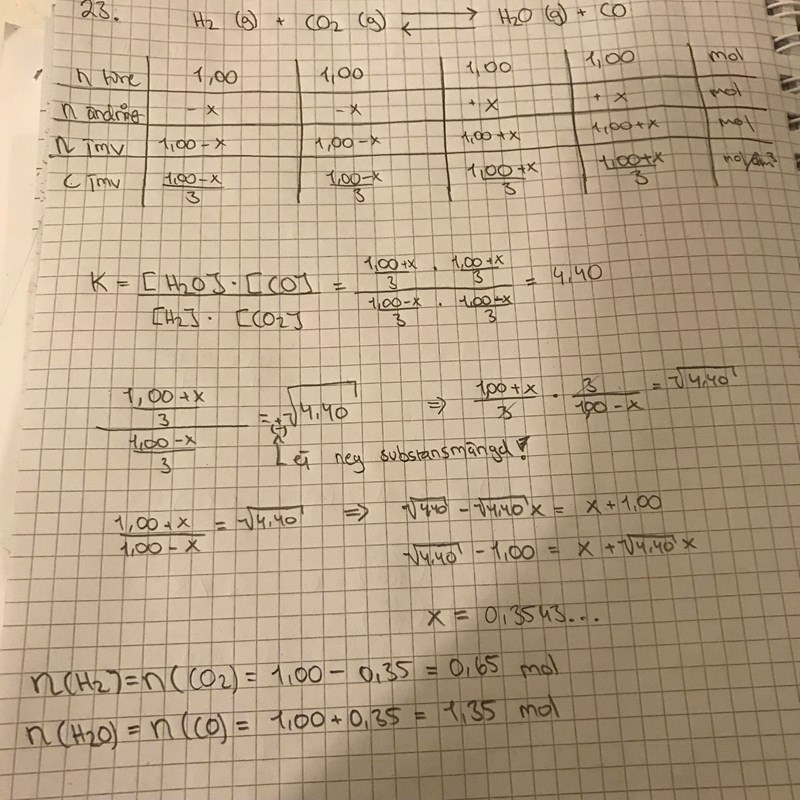 23. H₂ (g) + CO₂ (g) ⇌ H₂O (g) + CO
n före 1,00 1,00 1,00 1,00 mol
n ändring -x -x +x +x mol
n Jmv 1,00-x 1,00-x 1,00+x 1,00+x mol
C Jmv (1,00-x)/3 (1,00-x)/3 (1,00+x)/3 (1,00+x)/3 mol/dm³
K = [H₂O]·[CO] / [H₂]·[CO₂] = ((1,00+x)/3 · (1,00+x)/3) / ((1,00-x)/3 · (1,00-x)/3) = 4,40
((1,00+x)/3) / ((1,00-x)/3) = +(-)√4,40 ⇒ (1,00+x)/3 · 3/(1,00-x) = √4,40
ej neg substansmängd!
(1,00+x)/(1,00-x) = √4,40 ⇒ √4,40 - √4,40 x = x + 1,00
√4,40 - 1,00 = x + √4,40 x
x = 0,3543...
n(H₂) = n(CO₂) = 1,00 - 0,35 = 0,65 mol
n(H₂O) = n(CO) = 1,00 + 0,35 = 1,35 mol